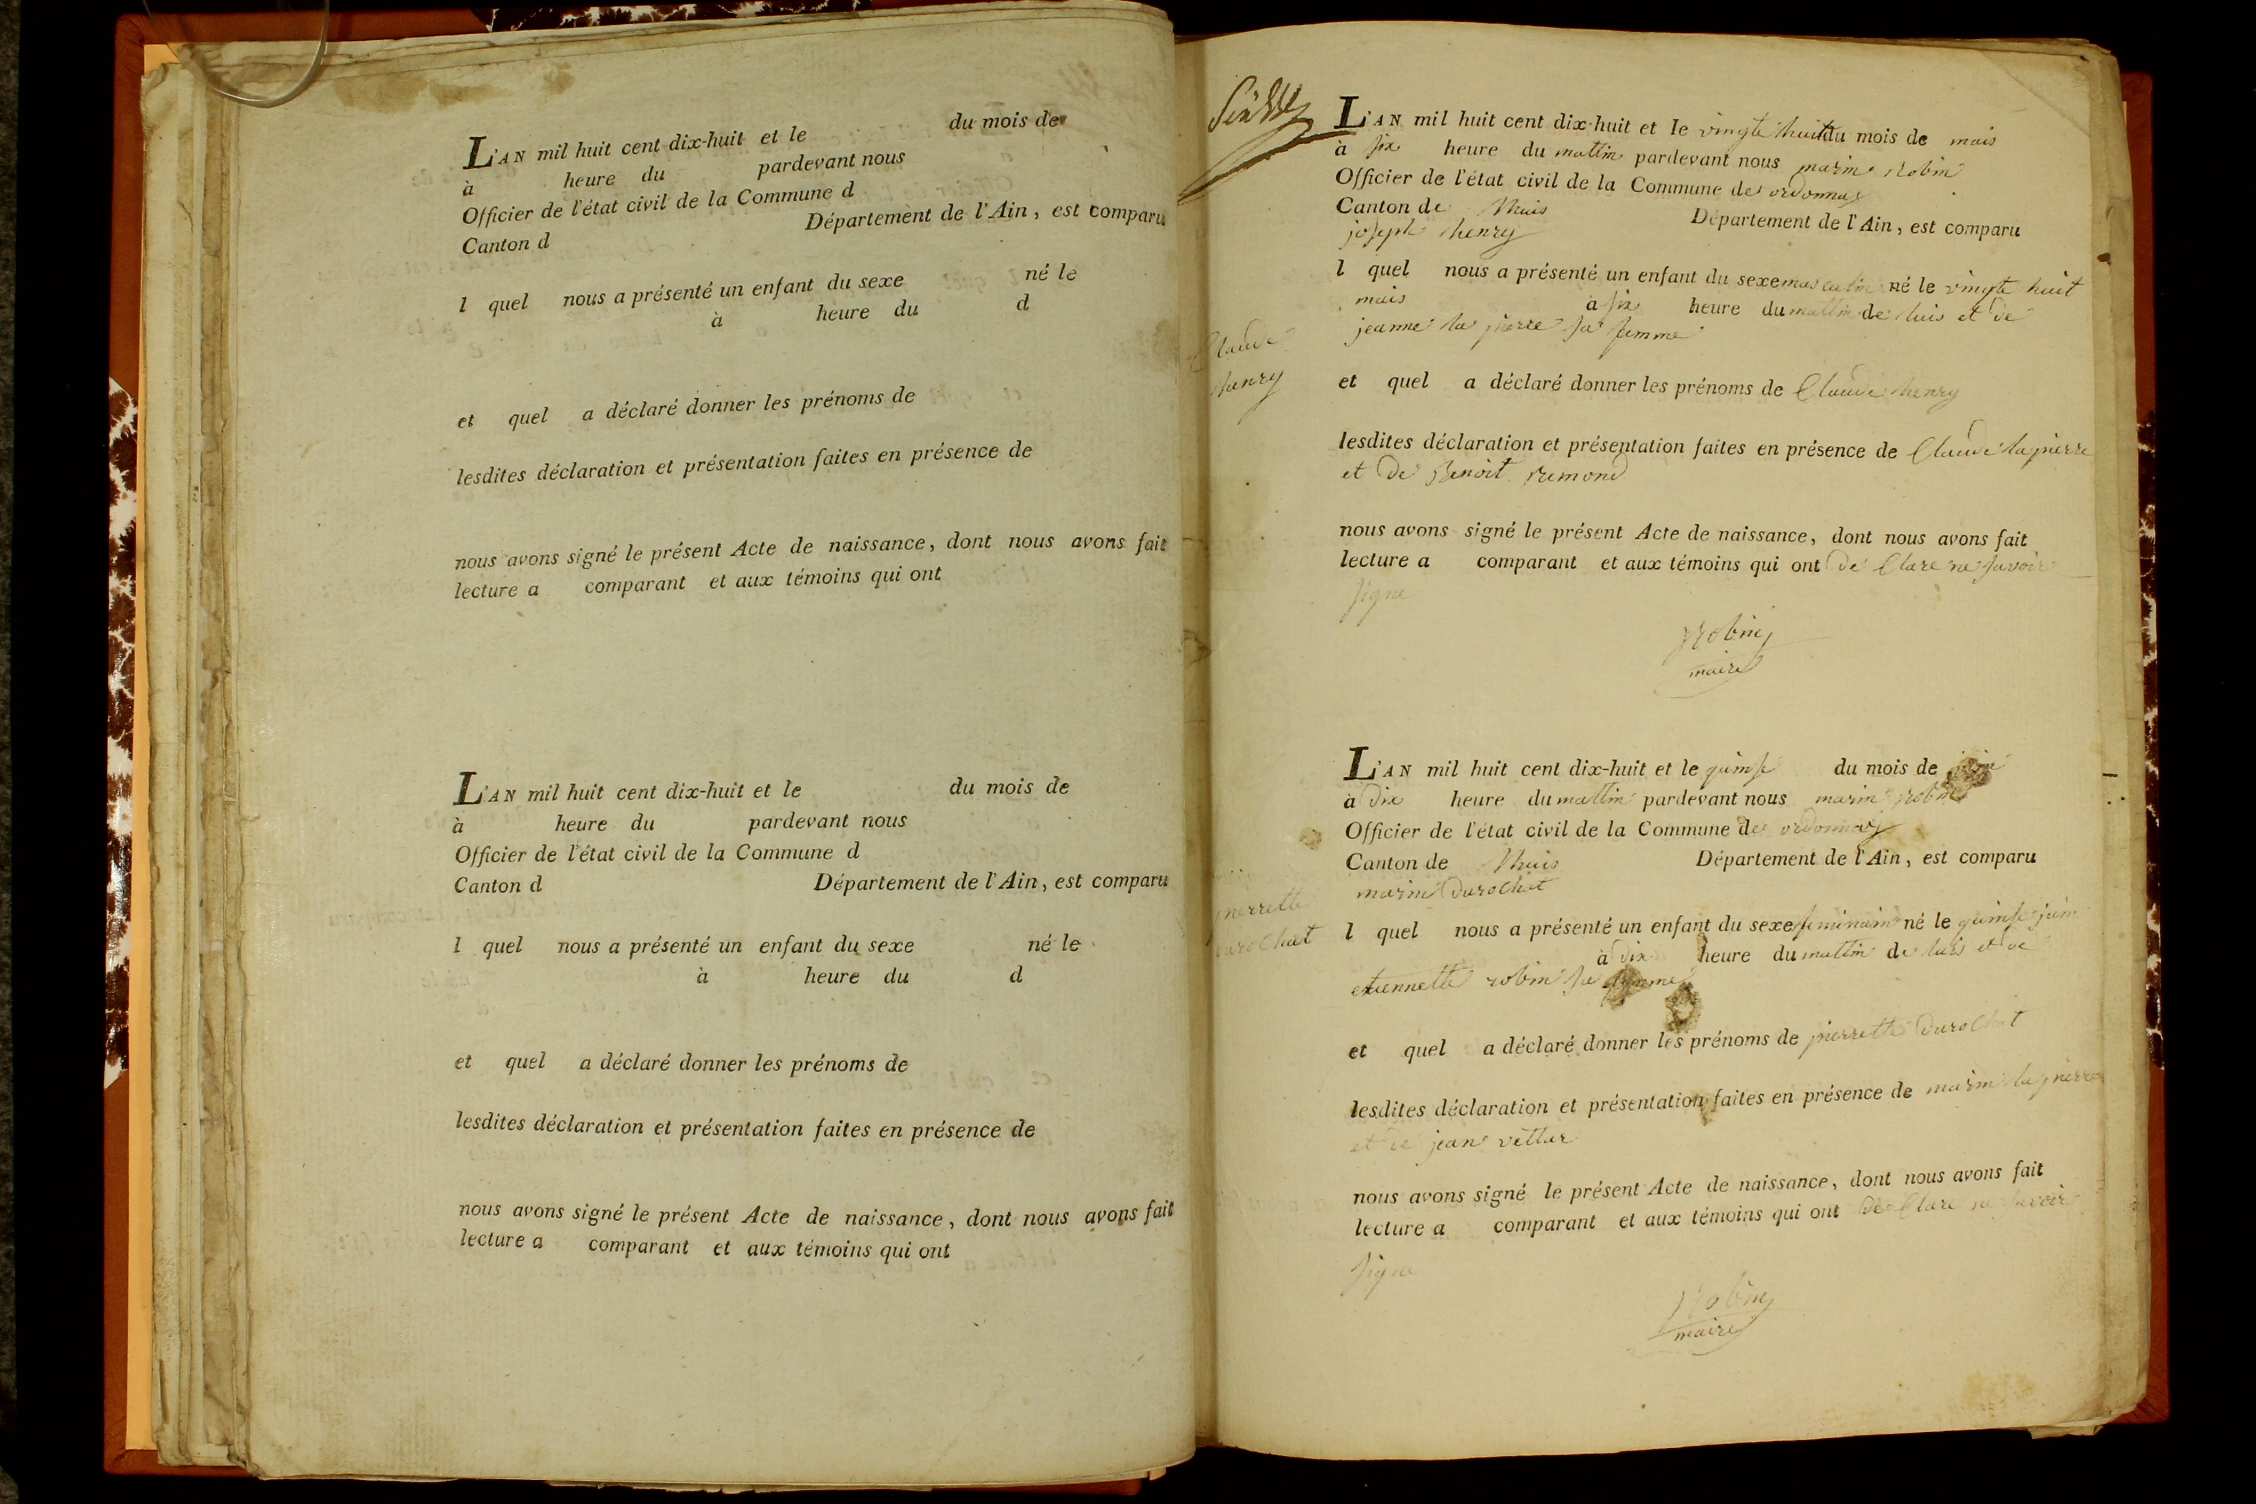 L'AN mil huit cent dix-huit et le du mois de
à heure du pardevant nous
Officier de l'état civil de la Commune d
Canton d Département de l'Ain, est comparu
l quel nous a présenté un enfant du sexe né le
à heure du d
et quel a déclaré donner les prénoms de
lesdites déclaration et présentation faites en présence de
nous avons signé le présent Acte de naissance, dont nous avons fait
lecture a comparant et aux témoins qui ont
L'AN mil huit cent dix-huit et le du mois de
à heure du pardevant nous
Officier de l'état civil de la Commune d
Canton d Département de l'Ain, est comparu
l quel nous a présenté un enfant du sexe né le
à heure du d
et quel a déclaré donner les prénoms de
lesdites déclaration et présentation faites en présence de
nous avons signé le présent Acte de naissance, dont nous avons fait
lecture a comparant et aux témoins qui ont
L'AN mil huit cent dix-huit et le vingte huit du mois de mais
à six heure du mattin pardevant nous marin robin
Officier de l'état civil de la Commune de ordonnas
Canton de lhuis Département de l'Ain, est comparu
joseph henry
l quel nous a présenté un enfant du sexe masculin né le vingte huit
mais à six heure du mattin de luis et de
jeanne la pierre sa femme
Claude
henry
et quel a déclaré donner les prénoms de Claude henry
lesdites déclaration et présentation faites en présence de Claude lapierre
et de Benoit remond
nous avons signé le présent Acte de naissance, dont nous avons fait
lecture a comparant et aux témoins qui ont de Clare ne savoir
signe
Robin
maire
L'AN mil huit cent dix-huit et le quinse du mois de
à dix heure du mattin pardevant nous marin robin
Officier de l'état civil de la Commune de ordonnas
Canton de lhuis Département de l'Ain, est comparu
marin durochat
pierrette
durochat
l quel nous a présenté un enfant du sexe feminain né le quinse juin
à dix heure du mattin de luis et de
etiennette robin sa femme
et quel a déclaré donner les prénoms de pierrette durochat
lesdites déclaration et présentation faites en présence de marin lapierre
et de jean vettar
nous avons signé le présent Acte de naissance, dont nous avons fait
lecture a comparant et aux témoins qui ont de Clare ne savoir
signe
Robin
maire